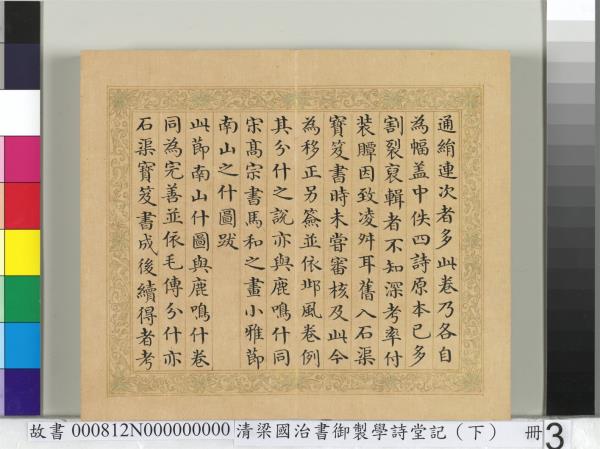 通絹連次者多此卷乃各自
為幅蓋中佚四詩原本已多
割裂裒輯者不知深考率付
裝贉因致凌舛耳舊入石渠
寶笈書時未嘗審核及此今
為移正另簽並依邶風卷例
其分什之說亦與鹿鳴什同
宋髙宗書馬和之畫小雅節
南山之什圖跋
此節南山什圖與鹿鳴什卷
同為完善並依毛傳分什亦
石渠寶笈書成後續得者考
故書 000812N000000000 清梁國治書御製學詩堂記（下） 冊3